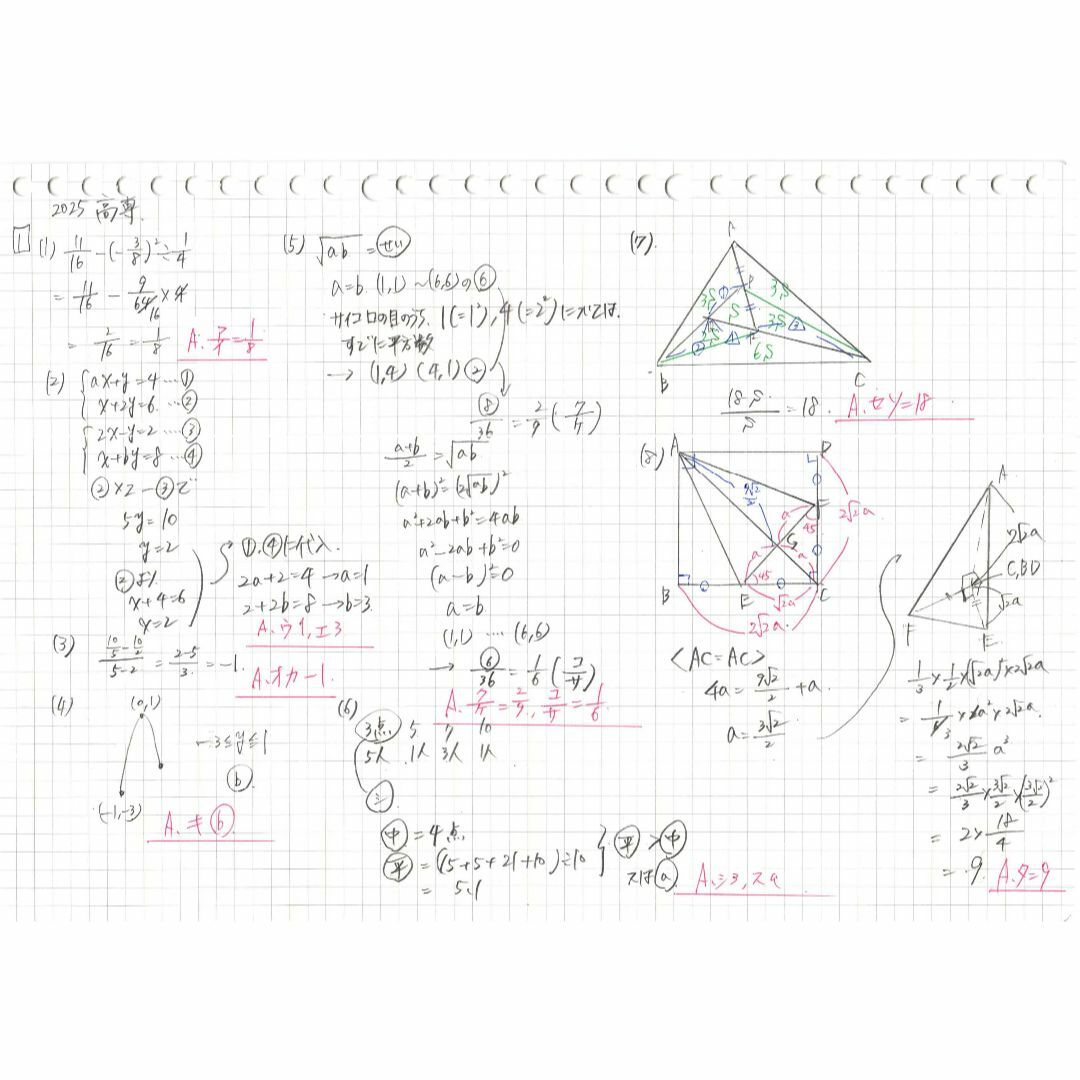 2025 高専.
1
(1) 11/16 - (-3/8)² ÷ 1/4
= 11/16 - 9/64 16 × 4
= 2/16 = 1/8
A. ア/イ = 1/8
(2) { ax+y=4 … ①
x+2y=6 … ②
{ 2x-y=2 … ③
x+by=8 … ④
②×2-③で
5y=10
y=2
②より
x+4=6
x=2
①.④に代入.
2a+2=4→a=1
2+2b=8→b=3.
A. ウ1, エ3
(3) (10/5 - 10/2)/(5-2) = (2-5)/3 = -1.
A. オカ -1.
(4) (0,1)
(-1,-3)
-3≦y≦1
ⓑ
A. キ ⓑ
(5) √ab = せい
a=b. (1,1) ~ (6,6) の ⑥
サイコロの目のうち. 1(=1²), 4(=2²)
すでに平方数
→ (1,4) (4,1) ②
⑧/36 = 2/9 (ク/ケ)
(a+b)/2 = √ab
(a+b)² = (2√ab)²
a²+2ab+b²=4ab
a²-2ab+b²=0
(a-b)²=0
a=b
(1,1) …. (6,6)
→ ⑥/36 = 1/6 (コ/サ)
A. ク/ケ = 2/9, コ/サ = 1/6
(6)
3点 5 7 10
5人 1人 3人 1人
中 = 4点
平 = (15+5+21+10)÷10
= 5.1
} 平 > 中
スは ⓐ
A. シ3, スa
(7).
A
P
B
C
3S ① 3S
S
3S 3S
② 6S
18S/S = 18. A. セソ=18
(8)
A
D
F
G
B
E
C
9√2/2
a
a
a
45
45
√2a
2√2a
2√2a.
<AC=AC>
4a = 9√2/2 + a.
a = 3√2/2
A
2√2a
C,B,D
√2a
F
E
1/3 × 1/2 × (√2a)² × 2√2a
= 1/3 × a² × 2√2a.
= 2√2/3 a³
= 2√2/3 × 3√2/2 × (3√2/2)²
= 2 × 18/4
= 9.
A. タ=9